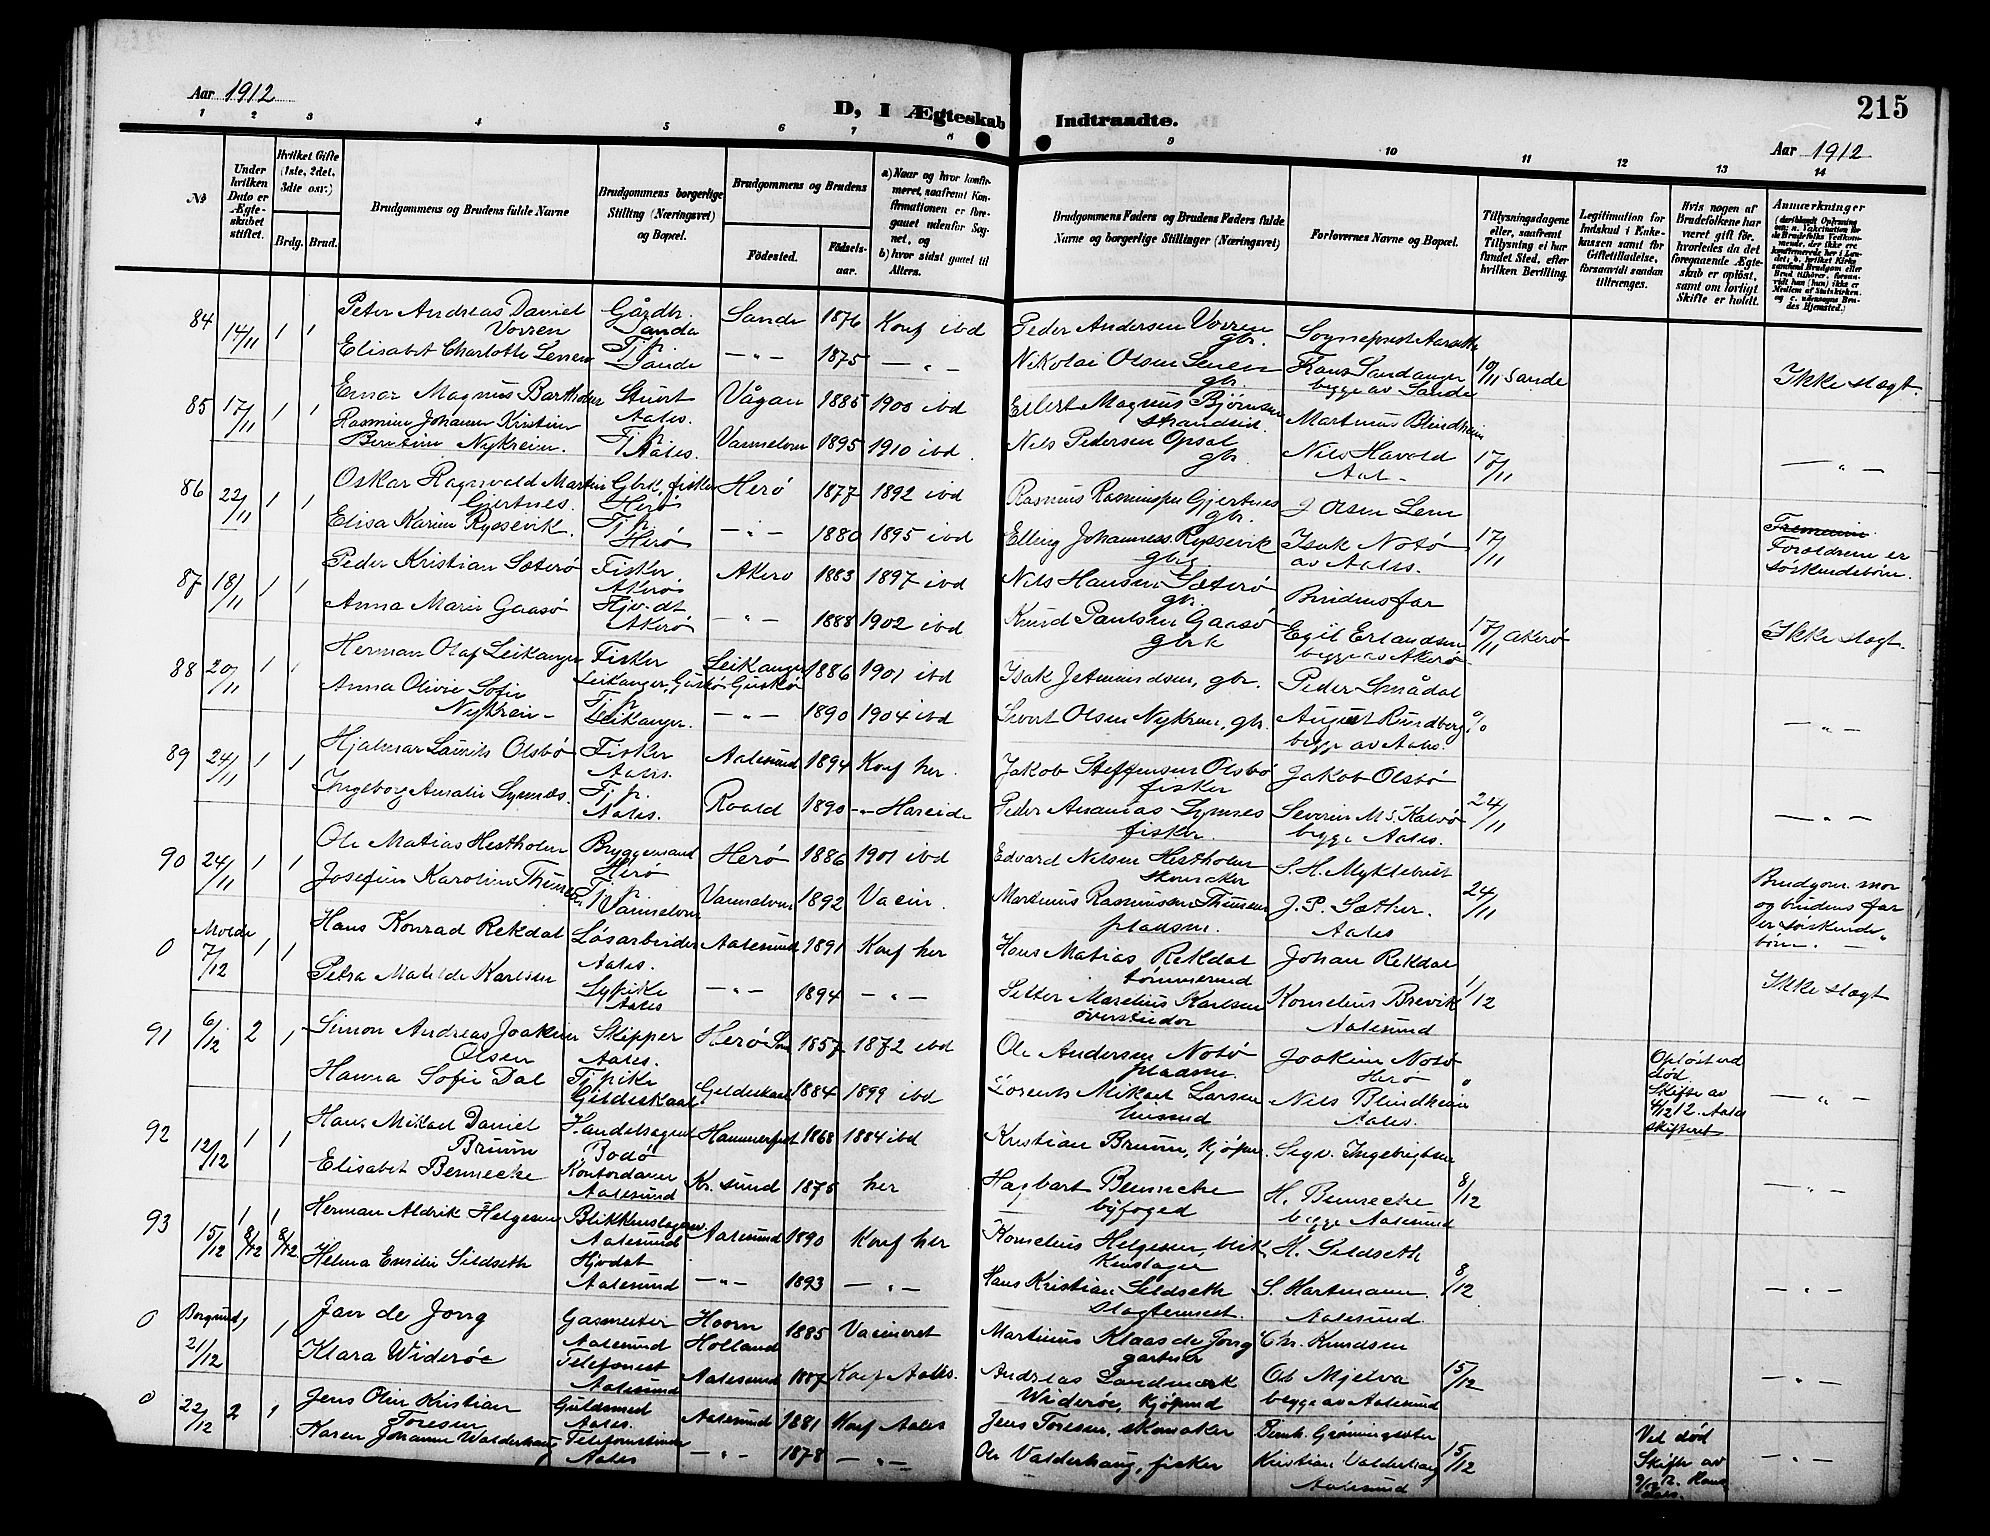 215
Aar 1912
D, I Ægteskab Indtraadte.
Aar 1912
1 2 3 4 5 6 7 8 9 10 11 12 13 14
№
Under hvilken Dato er Ægteskabet stiftet.
Hvilket Gifte (1ste, 2det, 3die osv.)
Brdg. Brud.
Brudgommens og Brudens fulde Navne
Brudgommens borgerlige Stilling (Næringsvei) og Bopæl.
Brudgommens og Brudens
Födested. Födselsaar.
a) Naar og hvor konfirmeret, saafremt Konfirmationen er foregaaet udenfor Sognet, og
b) hvor sidst gaaet til Alters.
Brudgommens Faders og Brudens Faders fulde Navne og borgerlige Stillinger (Næringsvei)
Forlovernes Navne og Bopæl.
Tillysningsdagene eller, saafremt Tillysning ei har fundet Sted, efter hvilken Bevilling.
Legitimation for Indskud i Enkekassen samt for Giftetilladelse, forsaavidt saadan tiltrænges.
Hvis nogen af Brudefolkene har været gift för, hvorledes da det foregaaende Ægteskab er oplöst, samt om lovligt Skifte er holdt.
Anmærkninger
84 14/11 1 1 Peter Andreas Daniel Gårdbr. Sande 1876 Konf ibd Peder Andersen Vorren Sogneprest Aarseth
Vorren Sande gbr.
Elisabet Charlotte Tj.p. Sande —"— 1875 —"— Nikolai Olsen gbr. Frans Sandanger 10/11 Sande Ikke slegt.
begge av Sande
85 17/11 1 1 Einar Magnus Aales. Vågan 1885 1900 ibd Magnus Bjørnsen Martinus Blindheim
Rasmine Johanne Kristine strandsid.
Nykreim. Tj.p. Aales. Vannelven 1895 1910 ibd. Nils Pedersen Opsal gbr. Nils Havold Aal. 17/11 —"—
86 22/11 1 1 Oskar Ragnvald Martin Gbr., fisker Herø 1877 1892 ibd Rasmus Gjertnes gbr. J Olsen
Gjertnes. Herø
Elisa Karine Ryssevik. Tj.p. Herø —"— 1880 1895 ibd Elling Johanness. Ryssevik Isak Notø av Aales. 17/11 Foreldrene er søskendebørn.
87 18/11 1 1 Peder Kristian Sæterø Fisker Akerø Akerø 1883 1897 ibd Nils Hansen Sæterø gbr. Brudens far
Anna Marie Gaasø Hjv. dt Akerø —"— 1888 1902 ibd Knud Paulsen Gaasø gbr Egil Erlandsen 17/11 Akerø Ikke slegt.
begge av Akerø
88 20/11 1 1 Herman Olaf Leikanger Fisker Leikanger 1886 1901 ibd Isak Jetmundsen, gbr. Peder Smådal
Leikanger, Guskø Guskø
Anna Olivie Sofie Tj.p.
Nykrein Leikanger. —"— 1890 1904 ibd Sivert Olsen Nykrein, gbr. August Rundberg % —"—
begge av Aales.
89 24/11 1 1 Hjalmar Laurits Olsbø Fisker Aales. Aalesund 1894 Konf her. Jakob Steffensen Olsbø fisker Jakob Olsbø
Ingeborg Amalie Synnes. Tj.p. Aales. Roald 1890 —"— Hareide Peder Ananias Synnes fisker. Severin M. Kalvø 24/11 —"—
begge Aales.
90 24/11 1 1 Ole Matias Hestholm Bryggemand Herø Herø 1886 1901 ibd Edvard Nilsen Hestholm S. H. Myklebust
Josefine Karoline Tj.p. Vannelven Vannelven 1892 Vacin. Martinus Rasmussen pladsm. J. P. Sæther. Aales 24/11 Brudgom. mor og brudens far er søskendebørn.
0 Molde 7/12 1 1 Hans Konrad Rekdal Løsarbeider Aales. Aalesund 1891 Konf her Hans Matias Rekdal tømmermd Johan Rekdal
Petra Matilde Karlsen Sypike Aales —"— 1894 —"— Marelius Karlsen Kornelius Brevik 1/12 Ikke slegt
Aalesund
91 6/12 2 1 Simon Andreas Joakim Skipper Herø 1857 1872 ibd Ole Andersen Notø Joakim Notø
Olsen Aales. pladsm. Herø
Hanna Sofie Dal Tj.pike Gildeskaal Gildeskaal 1884 1899 ibd Lorents Mikael Larsen husmd Nils Blindheim Aales. Opløst ved død. Skifte av 4/12 12. Aales skifteret —"—
92 12/12 1 1 Hans Mikael Daniel Handelsagent Hammerfest 1868 1884 ibd Kristian Bruun, kjøpm. Sigv. Ingebrigtsen
Bruun Bodø
Elisabet Bennecke Kontordame Aalesund Kr. sund 1875 her Hagbart Bennecke byfoged H. Bennecke 8/12 —"—
begge Aalesund
93 15/12 1 8/12 1 8/12 Herman Aldrik Helgesen Blikkenslager Aalesund Aalesund 1890 Konf her Kornelius Helgesen, blikkenslager H. Sildseth
Helma Emilie Sildseth Hjvdat Aalesund —"— 1893 —"— Hans Kristian Sildseth slagtermest. S. Hartmann Aalesund. 8/12 —"—
0 Borgund, 21/12 1 Jan de Jong Gasmester Aalesund Hoorn Holland 1885 Vacineret Martinus Klaas de Jong gartner Chr. Knudsen
Klara Widerøe Telefonist Aalesund Aalesund 1887 Konf Aales. Andreas Landmark Ole Mjelva 15/12 —"—
Widerøe, kjøpmd begge av Aalesund
0 22/12 2 1 Jens Olin Kristian Guldsmed Aalesund 1881 Konf Aales Jens Toresen, skomaker Bernh. Grønningsæter
Toresen Aales.
Karen Johanne Walderhaug Telefonistinde Aales —"— 1878 —"— Ole Valderhaug, fisker Kristian Valderhaug 15/12 Ved død Skifte av —"—
Aalesund